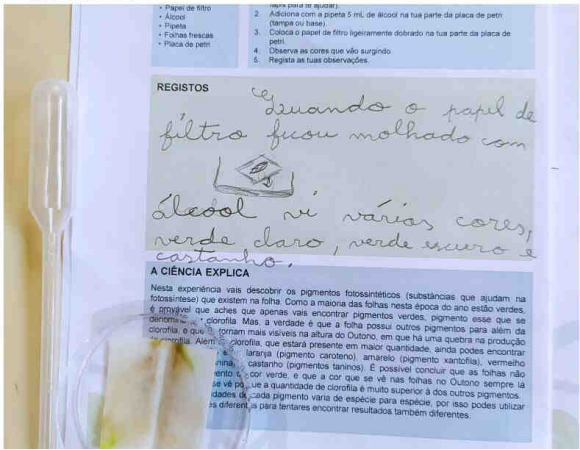 • Papel de filtro
• Álcool
• Pipeta
• Folhas frescas
• Placa de petri
2. Adiciona com a pipeta 5 mL de álcool na tua parte da placa de petri
(tampa ou base).
3. Coloca o papel de filtro ligeiramente dobrado na tua parte da placa de
petri.
4. Observa as cores que vão surgindo.
5. Regista as tuas observações.
REGISTOS
Quando o papel de
filtro ficou molhado com
álcool vi várias cores,
verde claro, verde escuro e
castanho.
A CIÊNCIA EXPLICA
Nesta experiência vais descobrir os pigmentos fotossintéticos (substâncias que ajudam na
fotossíntese) que existem na folha. Como a maioria das folhas nesta época do ano estão verdes,
é provável que aches que apenas vais encontrar pigmentos verdes, pigmento esse que se
clorofila. Mas, a verdade é que a folha possui outros pigmentos para além da
clorofila, e que tornam mais visíveis na altura do Outono, em que há uma quebra na produção
clorofila. Além clorofila, que estará presente em maior quantidade, ainda podes encontrar
laranja (pigmento caroteno), amarelo (pigmento xantofila), vermelho
castanho (pigmentos taninos). É possível concluir que as folhas não
cor verde, e que a cor que se vê nas folhas no Outono sempre lá
se vê a quantidade de clorofila é muito superior à dos outros pigmentos.
cada pigmento varia de espécie para espécie, por isso podes utilizar
para tentares encontrar resultados também diferentes.